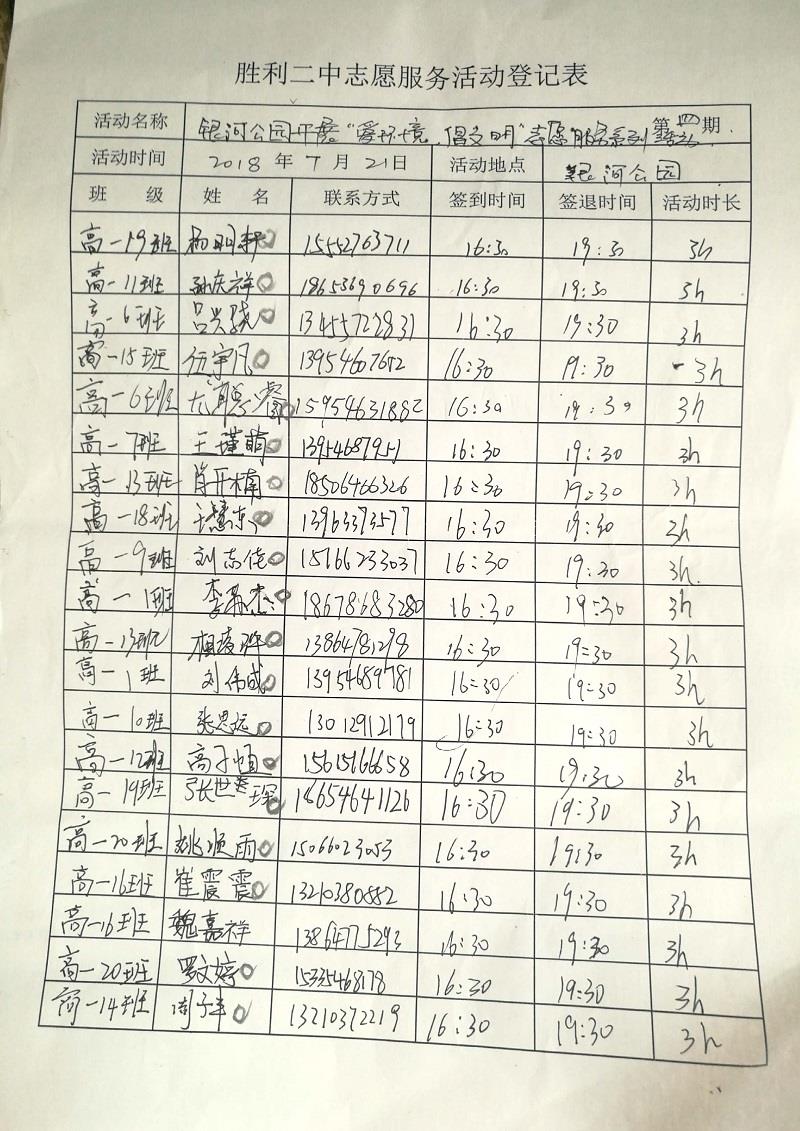 胜利二中志愿服务活动登记表
活动名称 银河公园开展“爱环境、倡文明”志愿服务系列活动 第四期
活动时间 2018年7月21日 活动地点 银河公园
班级 姓名 联系方式 签到时间 签退时间 活动时长
高一19班 15552763711 16:30 19:30 3h
高一11班 孙庆祥 18653690696 16:30 19:30 3h
高一6班 吕兴骁 13455722831 16:30 19:30 3h
高一15班 任宇凡 13954607652 16:30 19:30 3h
高一6班 15954631882 16:30 19:30 3h
高一7班 王瑾萌 1395468795 16:30 19:30 3h
高一13班 肖开楠 18506466326 16:30 19:30 3h
高一18班 13963373577 16:30 19:30 3h
高一9班 刘志佳 15166233037 16:30 19:30 3h.
高一1班 18678683280 16:30 19:30 3h
高一13班 13864781298 16:30 19:30 3h
高一1班 刘伟成 13954689781 16:30 19:30 3h
高一10班 张思远 13012912179 16:30 19:30 3h
高一12班 高子恒 15615166658 16:30 19:30 3h
高一19班 18654641126 16:30 19:30 3h
高一20班 姚顺雨 15066023053 16:30 19:30 3h
高一16班 崔震震 13210380882 16:30 19:30 3h
高一16班 魏嘉祥 13864775293 16:30 19:30 3h
高一20班 罗文婷 15335468178 16:30 19:30 3h
高一14班 周子丰 13210372219 16:30 19:30 3h